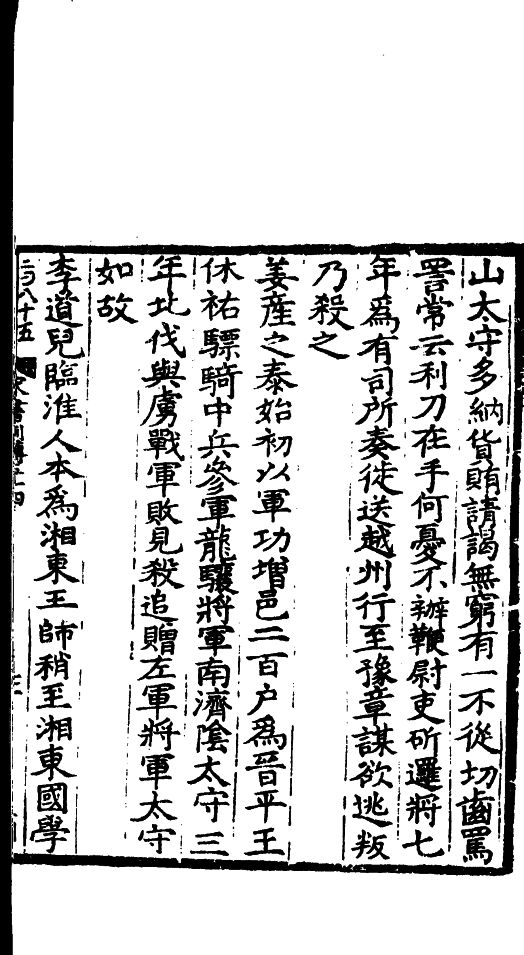 山太守多納貨賄請謁無窮有一不從切齒罵
詈常云利刀在手何憂不辦鞭尉吏斫邏將七
年爲有司所奏徙送越州行至豫章謀欲逃叛
乃殺之
姜産之泰始初以軍功增邑二百户爲晉平王
休祐驃騎中兵參軍龍驤將軍南濟隂太守三
年北伐與虜戰軍敗見殺追贈左軍將軍太守
如故
李道兒臨淮人本爲湘東王師稍至湘東國學